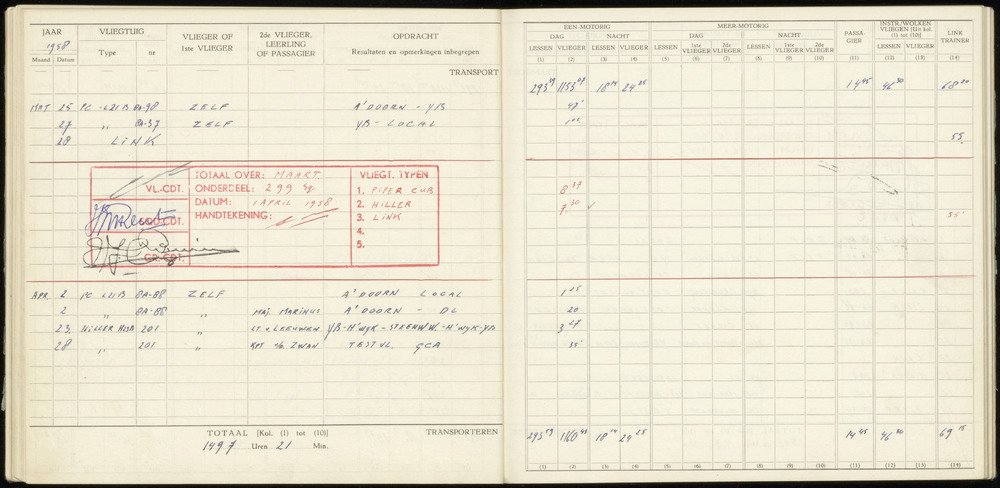 JAAR 1958 VLIEGTUIG VLIEGER OF 1ste VLIEGER 2de VLIEGER, LEERLING OF PASSAGIER OPDRACHT
Maand Datum Type nr Resultaten en opmerkingen inbegrepen
TRANSPORT
MRT 25 PC -L21B 8A-98 ZELF A'DOORN - YB
27 " 8A-37 ZELF YB - LOCAL
28 LINK
TOTAAL OVER: MAART VLIEGT. TYPEN
VL-CDT. ONDERDEEL: 299 Sq 1. PIPER CUB
DATUM: 1 APRIL 1958 2. HILLER
HANDTEKENING: 3. LINK
4.
GR-CDT. 5.
APR. 2 PC L21B 8A-88 ZELF A'DOORN LOCAL
2 " 8A-88 " MAJ. MARINUS A'DOORN - DL
23 HILLER H23B 201 " LT. v. LEEUWEN YB-H'WYK-STEENWW.-H'WYK-YB
28 " 201 " KPT v/d. ZWAN TESTVL. GCA
TOTAAL [Kol. (1) tot (10)] TRANSPORTEREN
1497 Uren 21 Min.
EEN-MOTORIG MEER-MOTORIG PASSA-GIER INSTR./WOLKEN VLIEGEN [Uit kol. (1) tot (10)] LINK TRAINER
DAG NACHT DAG NACHT
LESSEN VLIEGER LESSEN VLIEGER LESSEN 1ste VLIEGER 2de VLIEGER LESSEN 1ste VLIEGER 2de VLIEGER LESSEN VLIEGER
(1) (2) (3) (4) (5) (6) (7) (8) (9) (10) (11) (12) (13) (14)
293 59 1153 07 18 14 24 25 14 45 46 30 68 20
47
1 00
55
8 37
7 30 ✓ 55
1 25
20
3 27
35
293 59 1160 43 18 14 24 25 14 45 46 30 69 15
(1) (2) (3) (4) (5) (6) (7) (8) (9) (10) (11) (12) (13) (14)